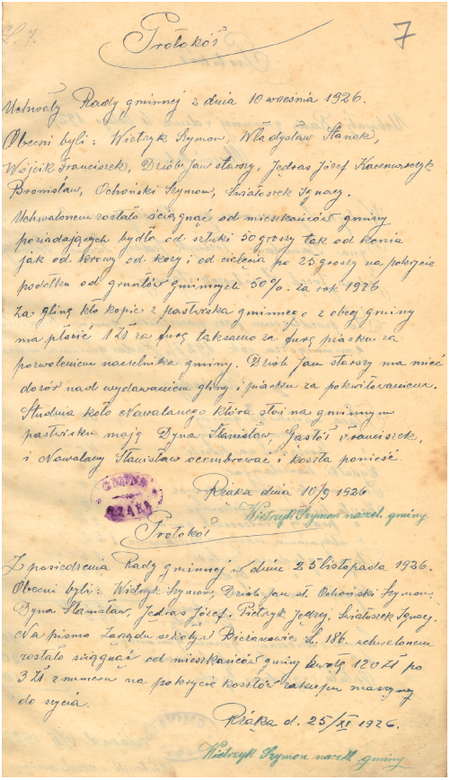 L. 7.
7
Protokół
Uchwały Rady gminnej z dnia 10 września 1926.
Obecni byli: Wietrzyk Szymon, Władysław Stanek,
Wójcik Franciszek, Dziób Jan starszy, Jedras Józef Kaczmarczyk
Bronisław, Ochoński Szymon, Światoszek Ignacy.
Uchwalonem zostało ściągnąć od mieszkańców gminy
posiadających bydło od sztuki 50 groszy tak od konia
jak od krowy od kozy i od cielenia po 25 groszy na pokrycie
podatku od gruntów gminnych 50%. za rok 1926
Za glinę kto kopie z pastwiska gminnego z obcej gminy
ma płacić 1 zł za furę taksamo za furę piasku za
pozwoleniem naczelnika gminy. Dziób Jan starszy ma mieć
dozór nad wydawaniem gliny i piasku za pokwitowaniem.
Studnia koło Nawalanego która stoi na gminnym
pastwisku mają Dyna Stanisław, Gąstoł Franciszek,
i Nawalany Stanisław ocembrować i koszta ponieść
Rżąka dnia 10/9 1926
Wietrzyk Szymon naczel. gminy
GMINA
RZĄKA
Protokół
Z posiedzenia Rady gminnej w dniu 25 listopada 1926.
Obecni byli: Wietrzyk Szymon, Dziób Jan st. Ochoński Szymon,
Dyna Stanisław, Jedras Józef, Pietrzyk Jędrzej, Światoszek Ignacy.
Na pismo Zarządu szkoły w Bieżanowie L. 186. uchwalonem
zostało ściągnąć od mieszkańców gminy kwotę 120 zł po
3 zł z numeru na pokrycie kosztów zakupu maszyny
do szycia.
Rżąka d. 25/XI 1926.
Wietrzyk Szymon naczel. gminy